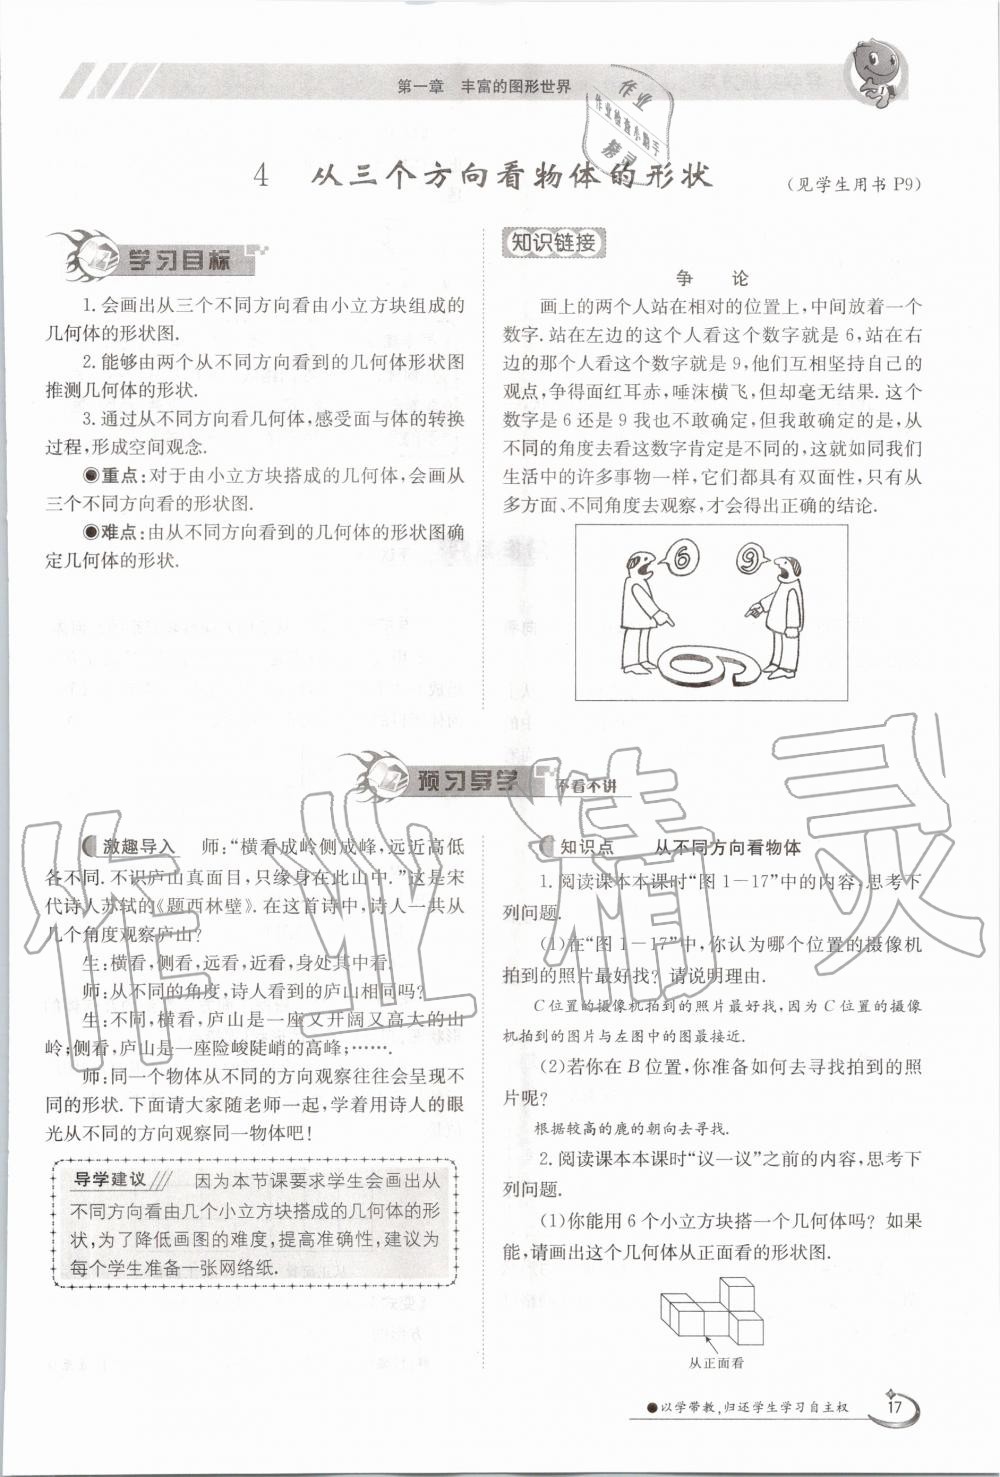 第一章 丰富的图形世界
作业
作业检查小助手
精灵
4 从三个方向看物体的形状
(见学生用书 P9)
学习目标
1. 会画出从三个不同方向看由小立方块组成的
几何体的形状图.
2. 能够由两个从不同方向看到的几何体形状图
推测几何体的形状.
3. 通过从不同方向看几何体,感受面与体的转换
过程,形成空间观念.
●重点:对于由小立方块搭成的几何体,会画从
三个不同方向看的形状图.
●难点:由从不同方向看到的几何体的形状图确
定几何体的形状.
知识链接
争 论
画上的两个人站在相对的位置上,中间放着一个
数字. 站在左边的这个人看这个数字就是 6,站在右
边的那个人看这个数字就是 9,他们互相坚持自己的
观点,争得面红耳赤,唾沫横飞,但却毫无结果. 这个
数字是 6 还是 9 我也不敢确定,但我敢确定的是,从
不同的角度去看这数字肯定是不同的,这就如同我们
生活中的许多事物一样,它们都具有双面性,只有从
多方面、不同角度去观察,才会得出正确的结论.
6 9
预习导学 不看不讲
激趣导入 师:“横看成岭侧成峰,远近高低
各不同. 不识庐山真面目,只缘身在此山中.”这是宋
代诗人苏轼的《题西林壁》. 在这首诗中,诗人一共从
几个角度观察庐山?
生:横看,侧看,远看,近看,身处其中看.
师:从不同的角度,诗人看到的庐山相同吗?
生:不同,横看,庐山是一座又开阔又高大的山
岭;侧看,庐山是一座险峻陡峭的高峰;…….
师:同一个物体从不同的方向观察往往会呈现不
同的形状. 下面请大家随老师一起,学着用诗人的眼
光从不同的方向观察同一物体吧!
导学建议 因为本节课要求学生会画出从
不同方向看由几个小立方块搭成的几何体的形
状,为了降低画图的难度,提高准确性,建议为
每个学生准备一张网络纸.
知识点 从不同方向看物体
1. 阅读课本本课时“图 1-17”中的内容,思考下
列问题.
(1)在“图 1-17”中,你认为哪个位置的摄像机
拍到的照片最好找? 请说明理由.
C 位置的摄像机拍到的照片最好找,因为 C 位置的摄像
机拍到的图片与左图中的图最接近.
(2)若你在 B 位置,你准备如何去寻找拍到的照
片呢?
根据较高的鹿的朝向去寻找.
2. 阅读课本本课时“议一议”之前的内容,思考下
列问题.
(1)你能用 6 个小立方块搭一个几何体吗? 如果
能,请画出这个几何体从正面看的形状图.
从正面看
作业精灵
●以学带教,归还学生学习自主权
17